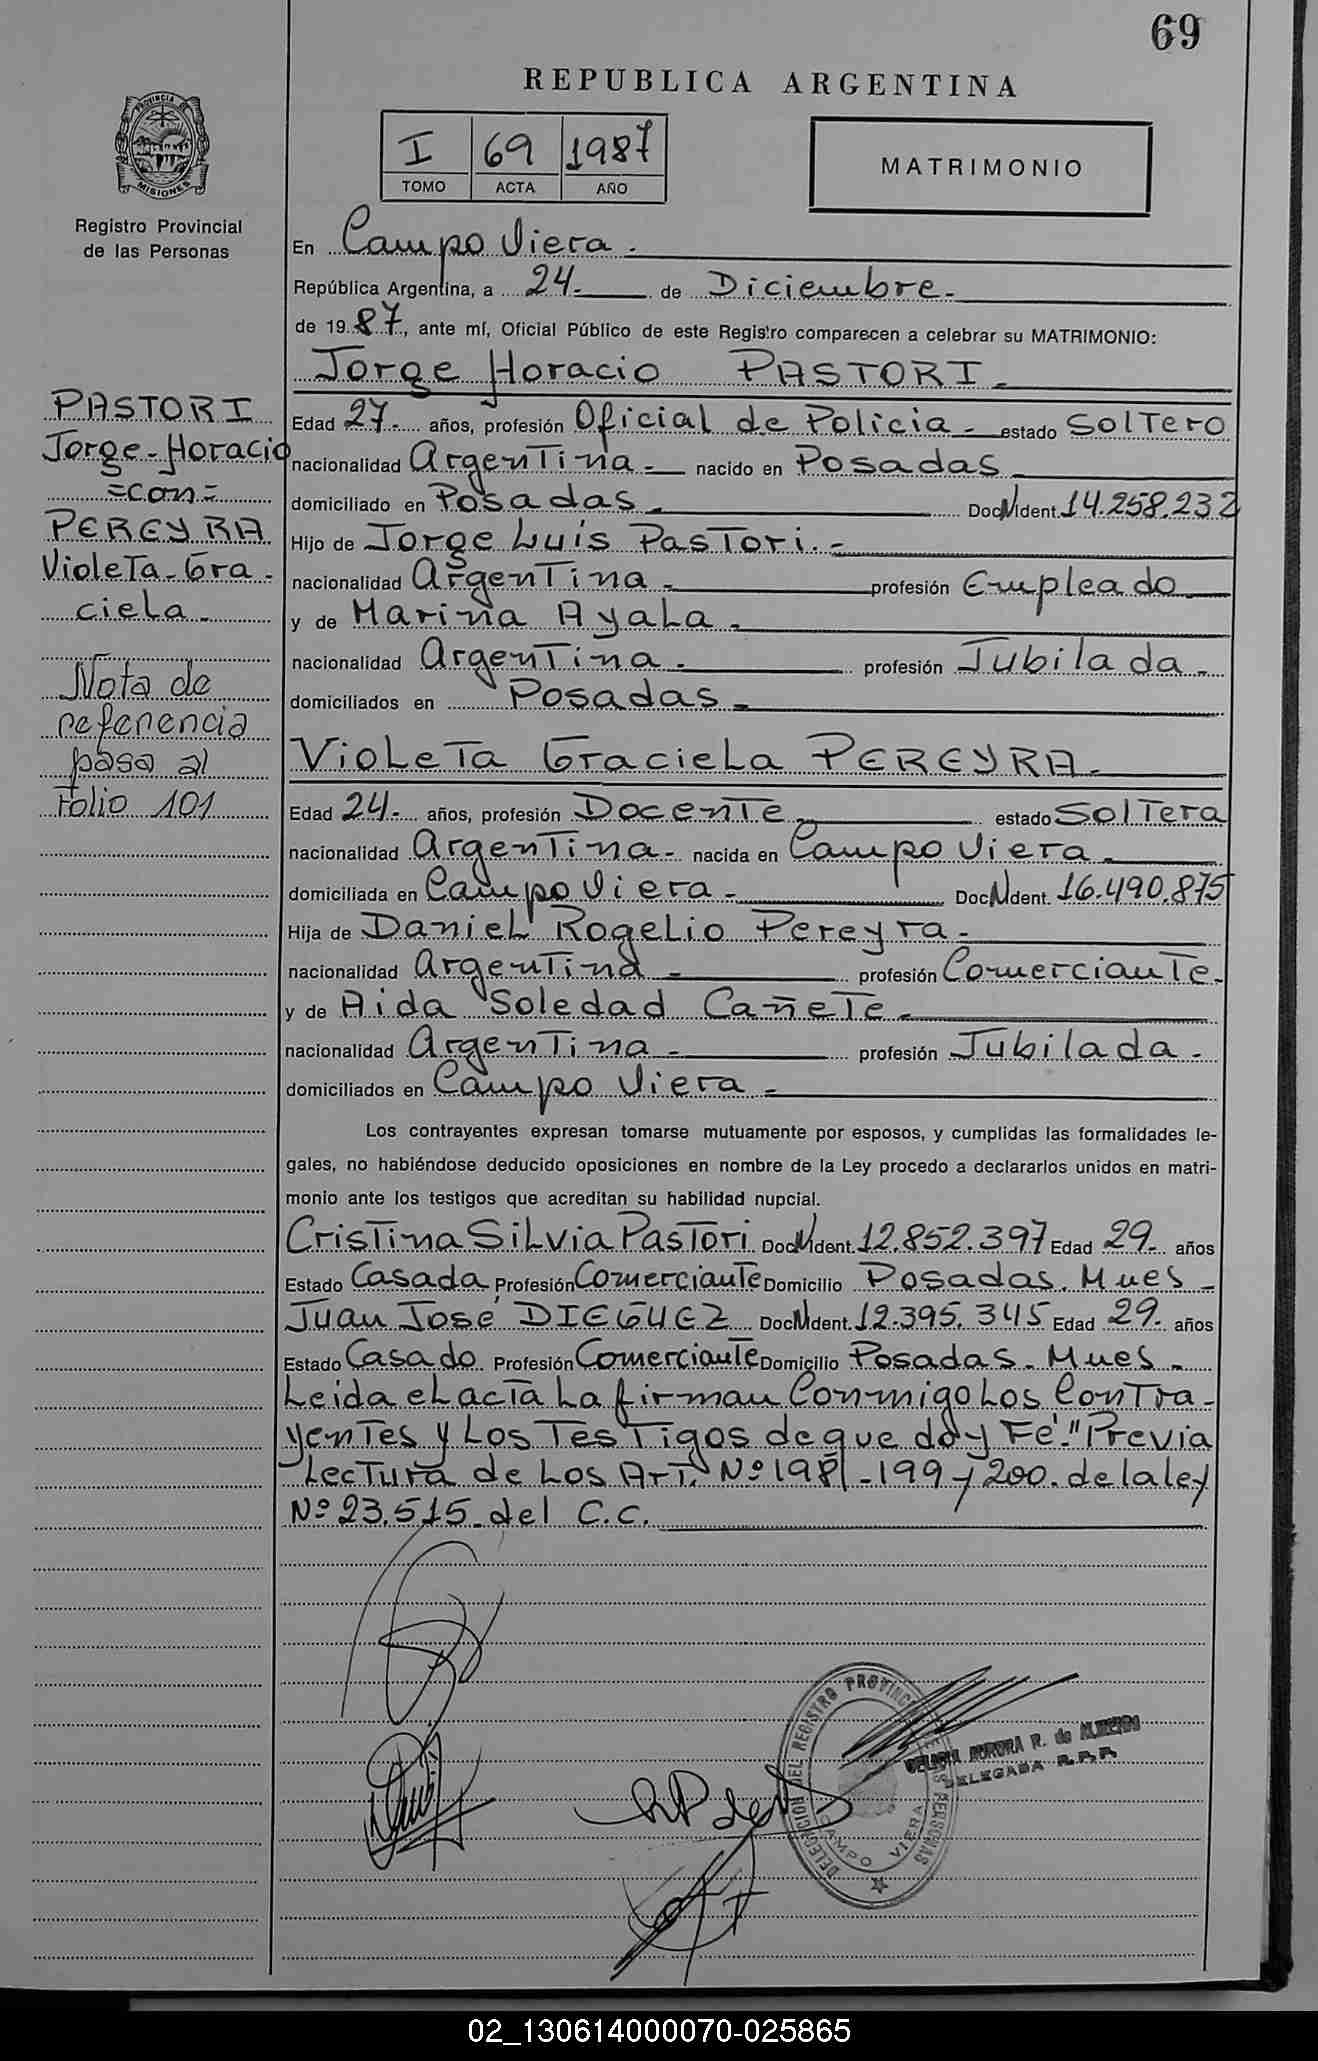 69
REPUBLICA ARGENTINA
PROVINCIA DE
MISIONES
I 69 1987
TOMO ACTA AÑO
MATRIMONIO
Registro Provincial
de las Personas
En Campo Viera.
República Argentina, a 24- de Diciembre-
de 1987, ante mí, Oficial Público de este Registro comparecen a celebrar su MATRIMONIO:
Jorge Horacio PASTORI-
PASTORI
Jorge-Horacio
=con=
PEREYRA
Violeta-Gra-
ciela-
Nota de
referencia
pasa al
Folio 101
Edad 27- años, profesión Oficial de Policia- estado Soltero
nacionalidad Argentina- nacido en Posadas
domiciliado en Posadas- Doc. N Ident. 14.258.232
Hijo de Jorge Luis Pastori.-
nacionalidad Argentina- profesión Empleado
y de Marina Ayala-
nacionalidad Argentina- profesión Jubilada-
domiciliados en Posadas-
Violeta Graciela PEREYRA-
Edad 24- años, profesión Docente estado Soltera
nacionalidad Argentina- nacida en Campo Viera-
domiciliada en Campo Viera- Doc. N Ident. 16.490.875
Hija de Daniel Rogelio Pereyra-
nacionalidad Argentina- profesión Comerciante-
y de Aida Soledad Cañete-
nacionalidad Argentina- profesión Jubilada-
domiciliados en Campo Viera-
Los contrayentes expresan tomarse mutuamente por esposos, y cumplidas las formalidades le-
gales, no habiéndose deducido oposiciones en nombre de la Ley procedo a declararlos unidos en matri-
monio ante los testigos que acreditan su habilidad nupcial.
Cristina Silvia Pastori Doc. N Ident. 12.852.397 Edad 29- años
Estado Casada Profesión Comerciante Domicilio Posadas. Mnes-
Juan José DIEGUEZ Doc. N Ident. 12.395.345 Edad 29- años
Estado Casado Profesión Comerciante Domicilio Posadas- Mnes-
Leida el acta la firman Conmigo los Contra-
yentes y los Testigos de que doy Fé." Previa
Lectura de los Art. Nº 198-199 y 200. de la ley
Nº 23.515 del C.C.
DELEGACION DEL REGISTRO PROVINCIAL DE LAS PERSONAS
CAMPO VIERA
AURORA R. de ALMEIDA
DELEGADA R.P.P.
02_130614000070-025865